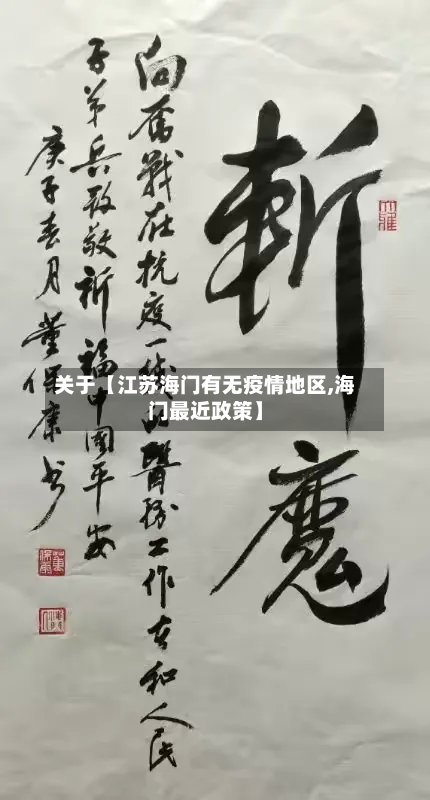 斬魔
向奮戰在抗疫一线的醫務工作者和人民
子弟兵致敬祈福中國平安
庚子春月董保康书
关于【江苏海门有无疫情地区,海
门最近政策】